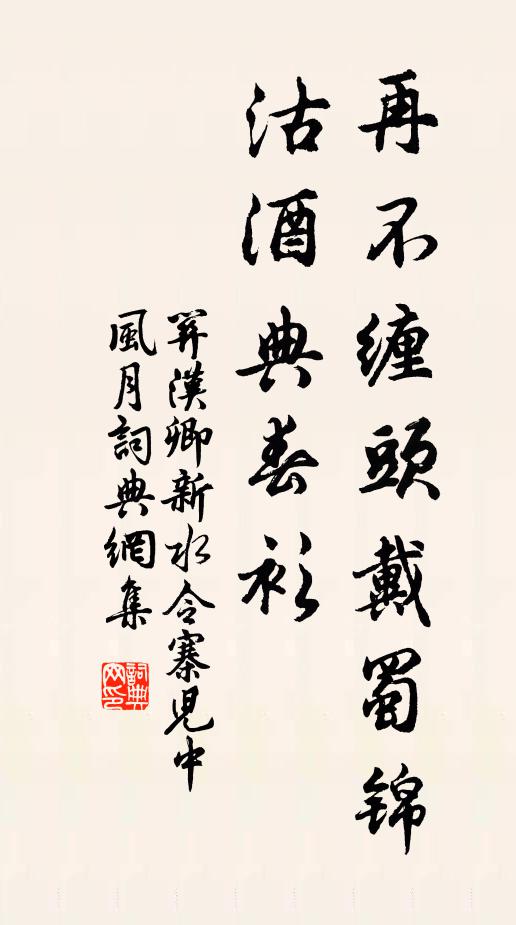 再不缠頭戴蜀锦
沽酒典春衫
関漢卿新水令寨児中
風月詞典網集
詞典网印